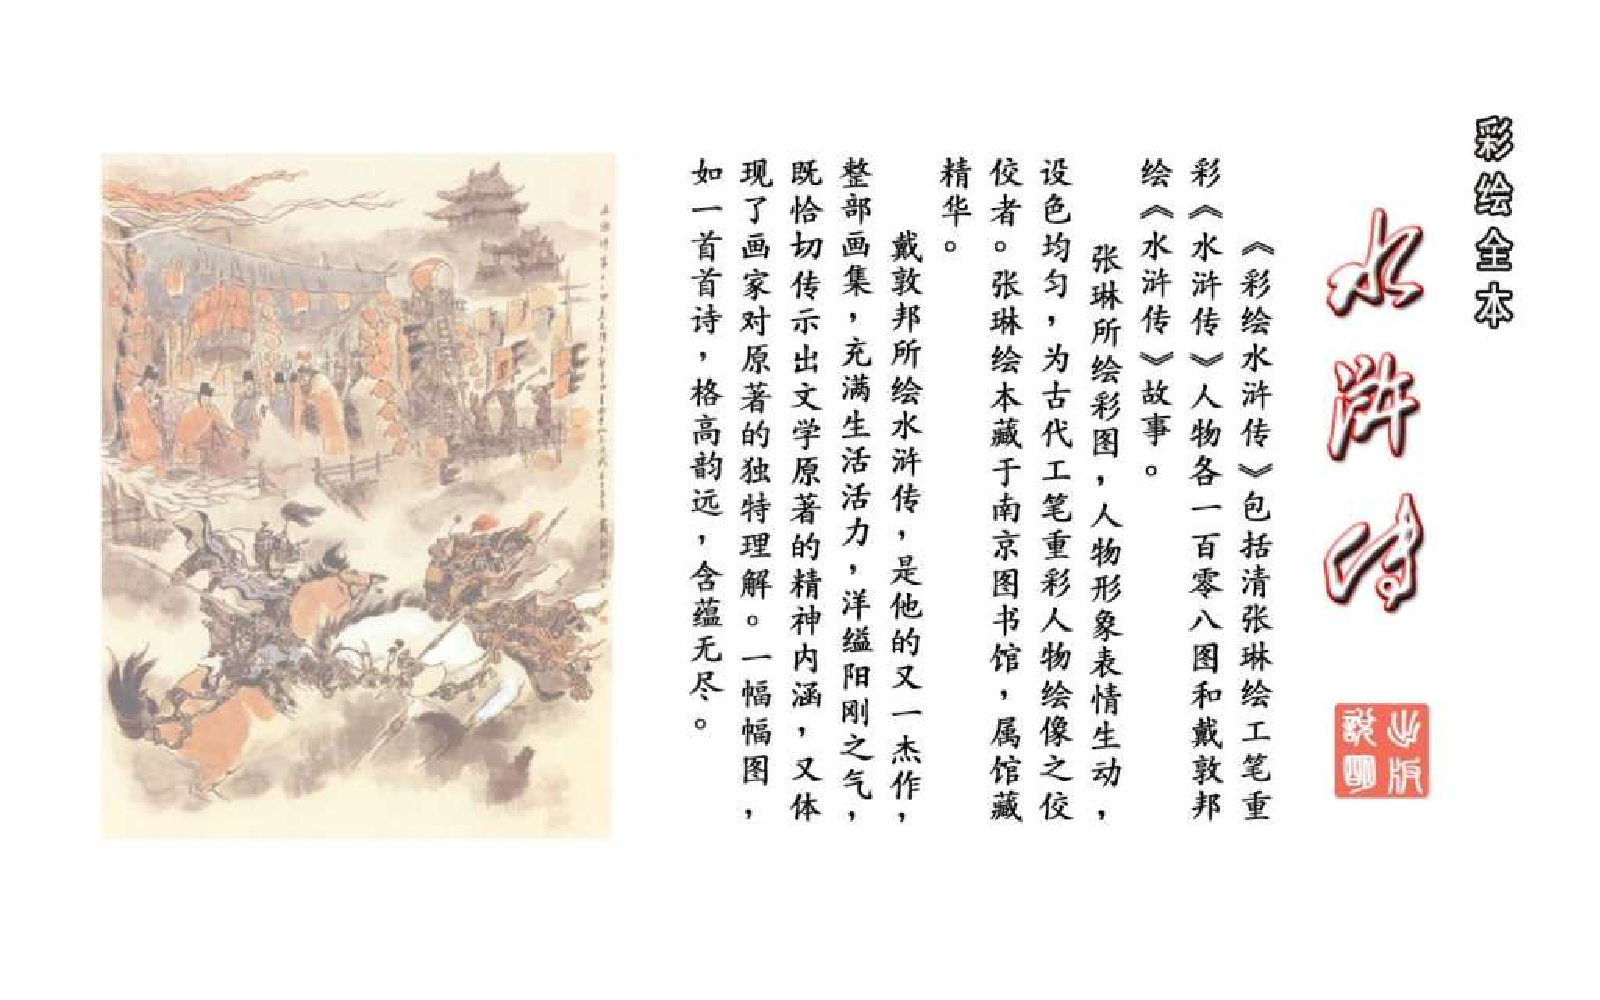 彩绘全本
水浒传
出版说明
《彩绘水浒传》包括清张琳绘工笔重
彩《水浒传》人物各一百零八图和戴敦邦
绘《水浒传》故事。
张琳所绘彩图，人物形象表情生动，
设色均匀，为古代工笔重彩人物绘像之佼
佼者。张琳绘本藏于南京图书馆，属馆藏
精华。
戴敦邦所绘水浒传，是他的又一杰作，
整部画集，充满生活活力，洋缢阳刚之气，
既恰切传示出文学原著的精神内涵，又体
现了画家对原著的独特理解。一幅幅图，
如一首首诗，格高韵远，含蕴无尽。